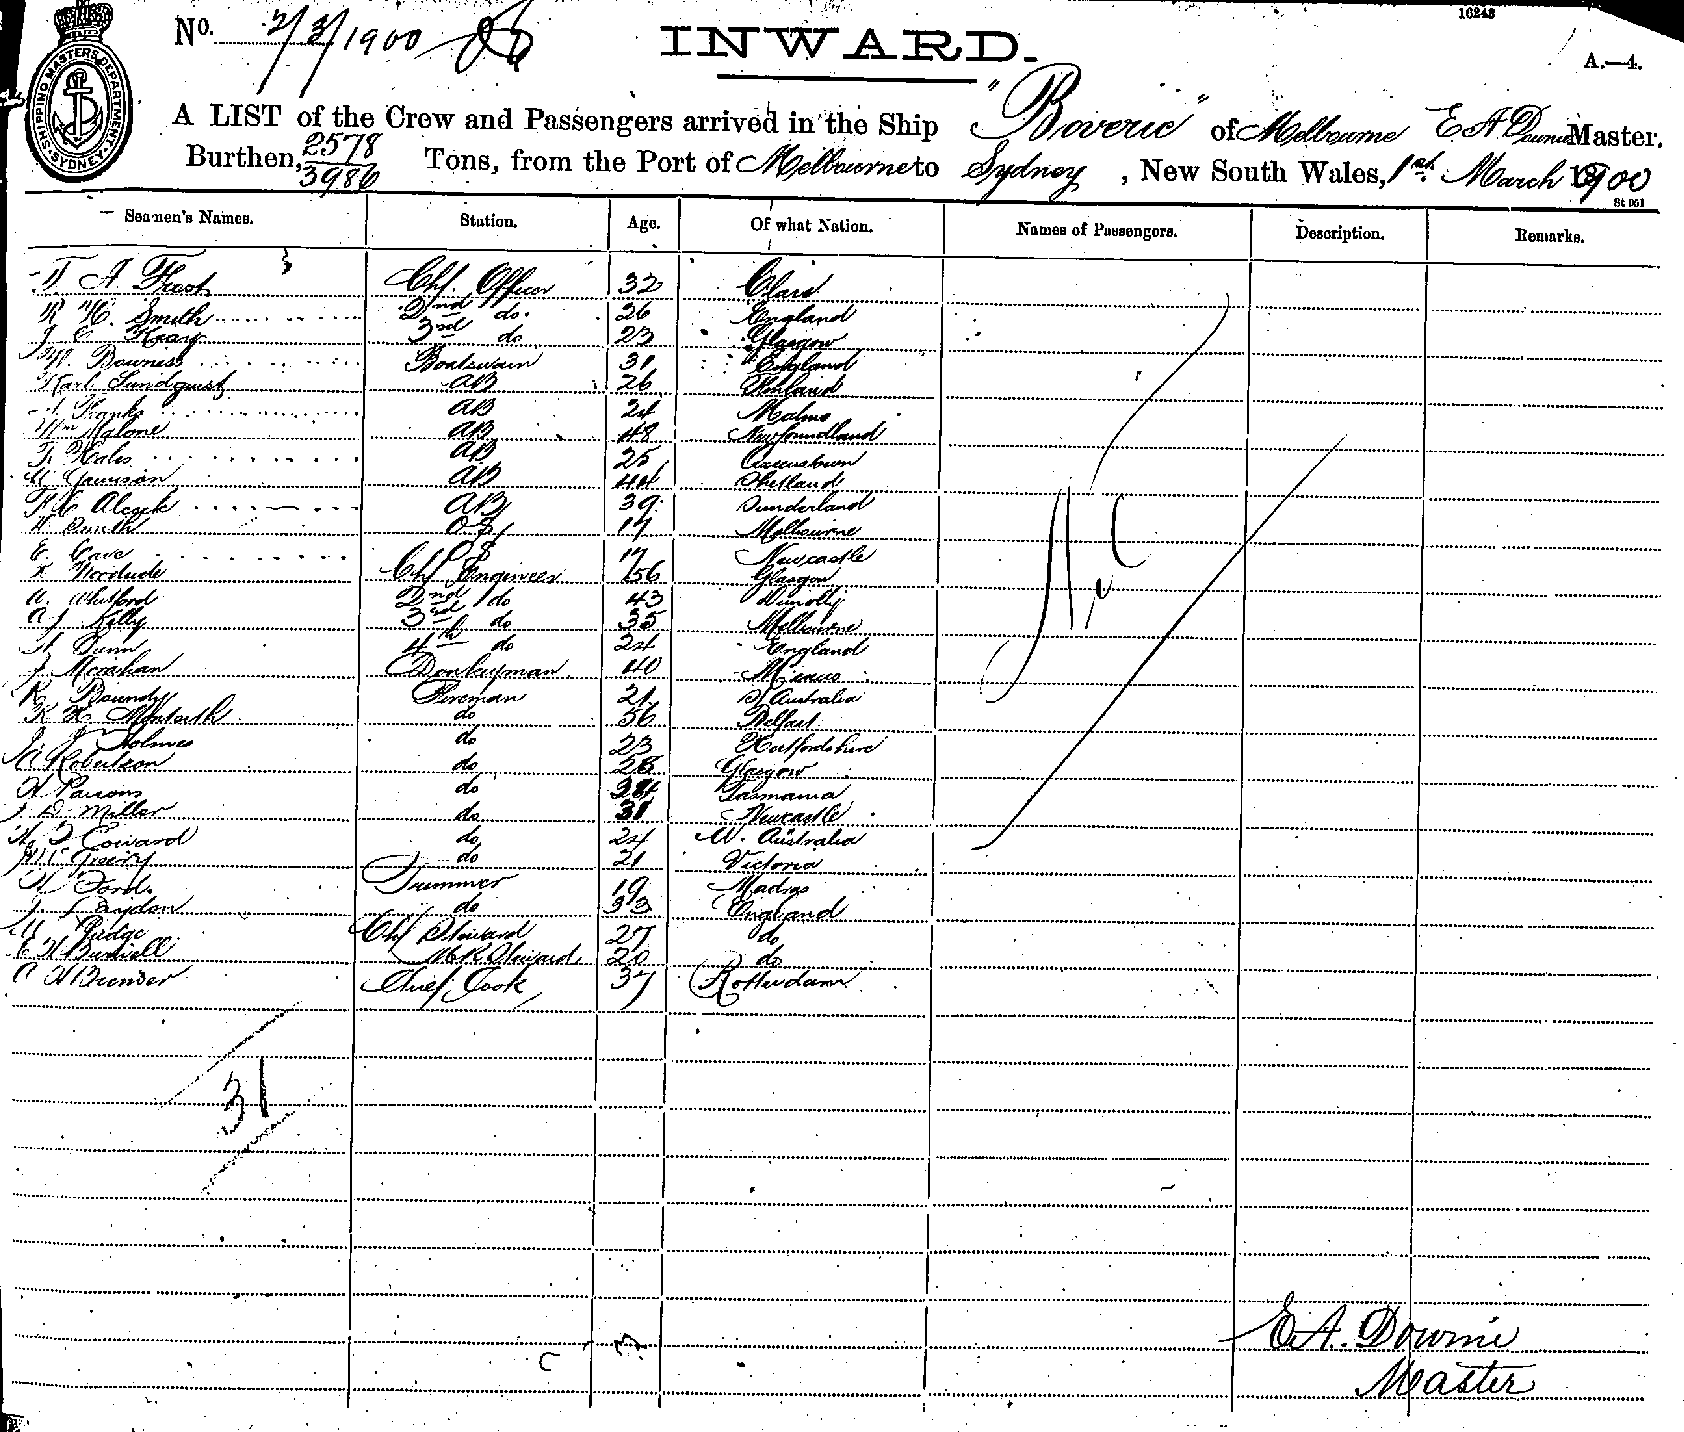 16243
No. 2/3/1900
INWARD.
A.—4.
SHIPPING MASTERS DEPARTMENT SYDNEY
A LIST of the Crew and Passengers arrived in the Ship "Boveric" of Melbourne E A Downie Master.
Burthen, 2578 / 3986 Tons, from the Port of Melbourne to Sydney, New South Wales, 1st March 1900
St 951
Seamen's Names. Station. Age. Of what Nation. Names of Passengers. Description. Remarks.
A Frost Chf. Officer 32 Clare
Smith 2nd do. 26 England
J E Kray 3rd do 23 Glasgow
Downes Boatswain 31 England
Karl Lundquist AB 26 Finland
Franks AB 24 Malmo
Wm Malone AB 48 Newfoundland
Hales AB 25 Queenstown
Garrison AB 44 Shetland
Alcock AB 39 Sunderland
Smith OS 17 Melbourne
E. Cave OS 17 Newcastle
Chf Engineer 56 Glasgow
Whitford 2nd do 43 Dunolly
A J Kelly 3rd do 35 Melbourne
Dunn 4th do 24 England
J Monahan Donkeyman 40
R Boundy Fireman 21 S Australia
do 56 Belfast
J J Holmes do 23 Hertfordshire
Robertson do 28 Glasgow
Parsons do 34 Tasmania
J D Miller do 31 Newcastle
do 24 W. Australia
do 21 Victoria
Ford. Trimmer 19 Madras
do 33 England
Ridge Chf Steward 27 do
E H Burnell M R Steward 20 do
Chief Cook 37 Rotterdam
31
E A. Downie
Master